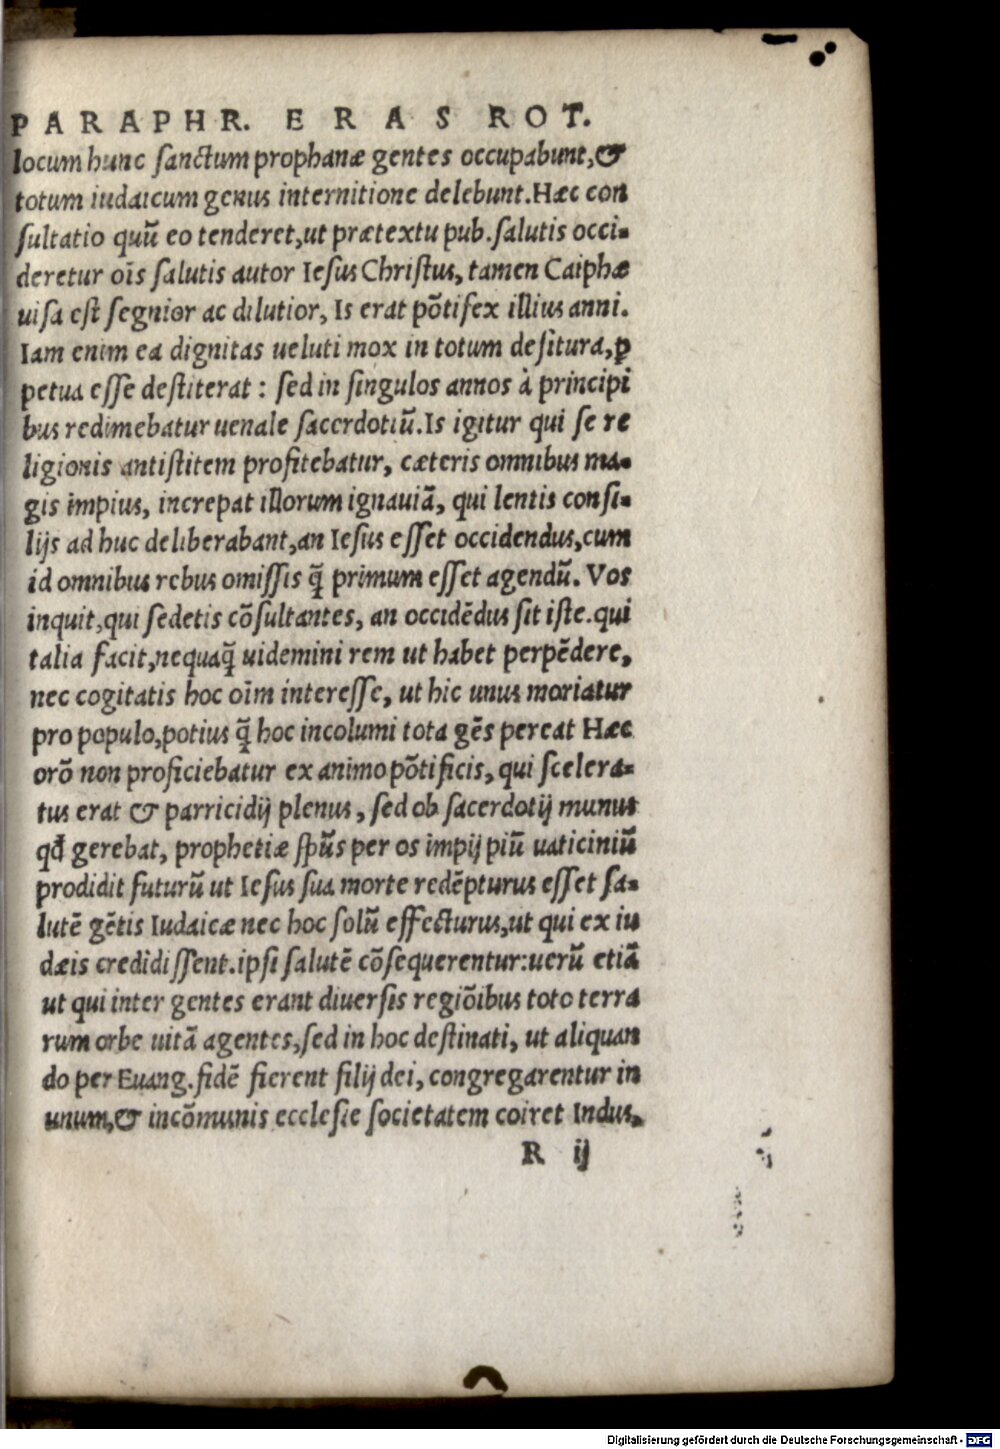 PARAPHR. ERAS ROT.
locum hunc sanctum prophanæ gentes occupabunt,&
totum iudaicum genus internitione delebunt.Hæc con
sultatio quū eo tenderet,ut prætextu pub.salutis occi-
deretur oīs salutis autor Iesus Christus, tamen Caiphæ
uisa est segnior ac dilutior, Is erat põtifex illius anni.
Iam enim ea dignitas ueluti mox in totum desitura,ꝑ
petua esse destiterat : sed in singulos annos à principi
bus redimebatur uenale sacerdotiū.Is igitur qui se re
ligionis antistitem profitebatur, cæteris omnibus ma-
gis impius, increpat illorum ignauiã, qui lentis consi-
lijs ad huc deliberabant,an Iesus esset occidendus,cum
id omnibus rebus omissis q̃ primum esset agendū. Vos
inquit,qui sedetis cõsultantes, an occidēdus sit iste.qui
talia facit,nequaq̃ uidemini rem ut habet perpēdere,
nec cogitatis hoc oīm interesse, ut hic unus moriatur
pro populo,potius q̃ hoc incolumi tota gēs pereat Hæc
orõ non proficiebatur ex animo põtificis, qui scelera-
tus erat & parricidij plenus, sed ob sacerdotij munus
qđ gerebat, prophetiæ spūs per os impij piū uaticiniū
prodidit futurū ut Iesus sua morte redēpturus esset sa-
lutē gētis Iudaicæ nec hoc solū effecturus,ut qui ex iu
dæis credidissent.ipsi salutē cõsequerentur:uerū etiã
ut qui inter gentes erant diuersis regiõibus toto terra
rum orbe uitã agentes,sed in hoc destinati, ut aliquan
do per Euang.fidē fierent filij dei, congregarentur in
unum,& incõmunis ecclesie societatem coiret Indus,
R ij
Digitalisierung gefördert durch die Deutsche Forschungsgemeinschaft - DFG